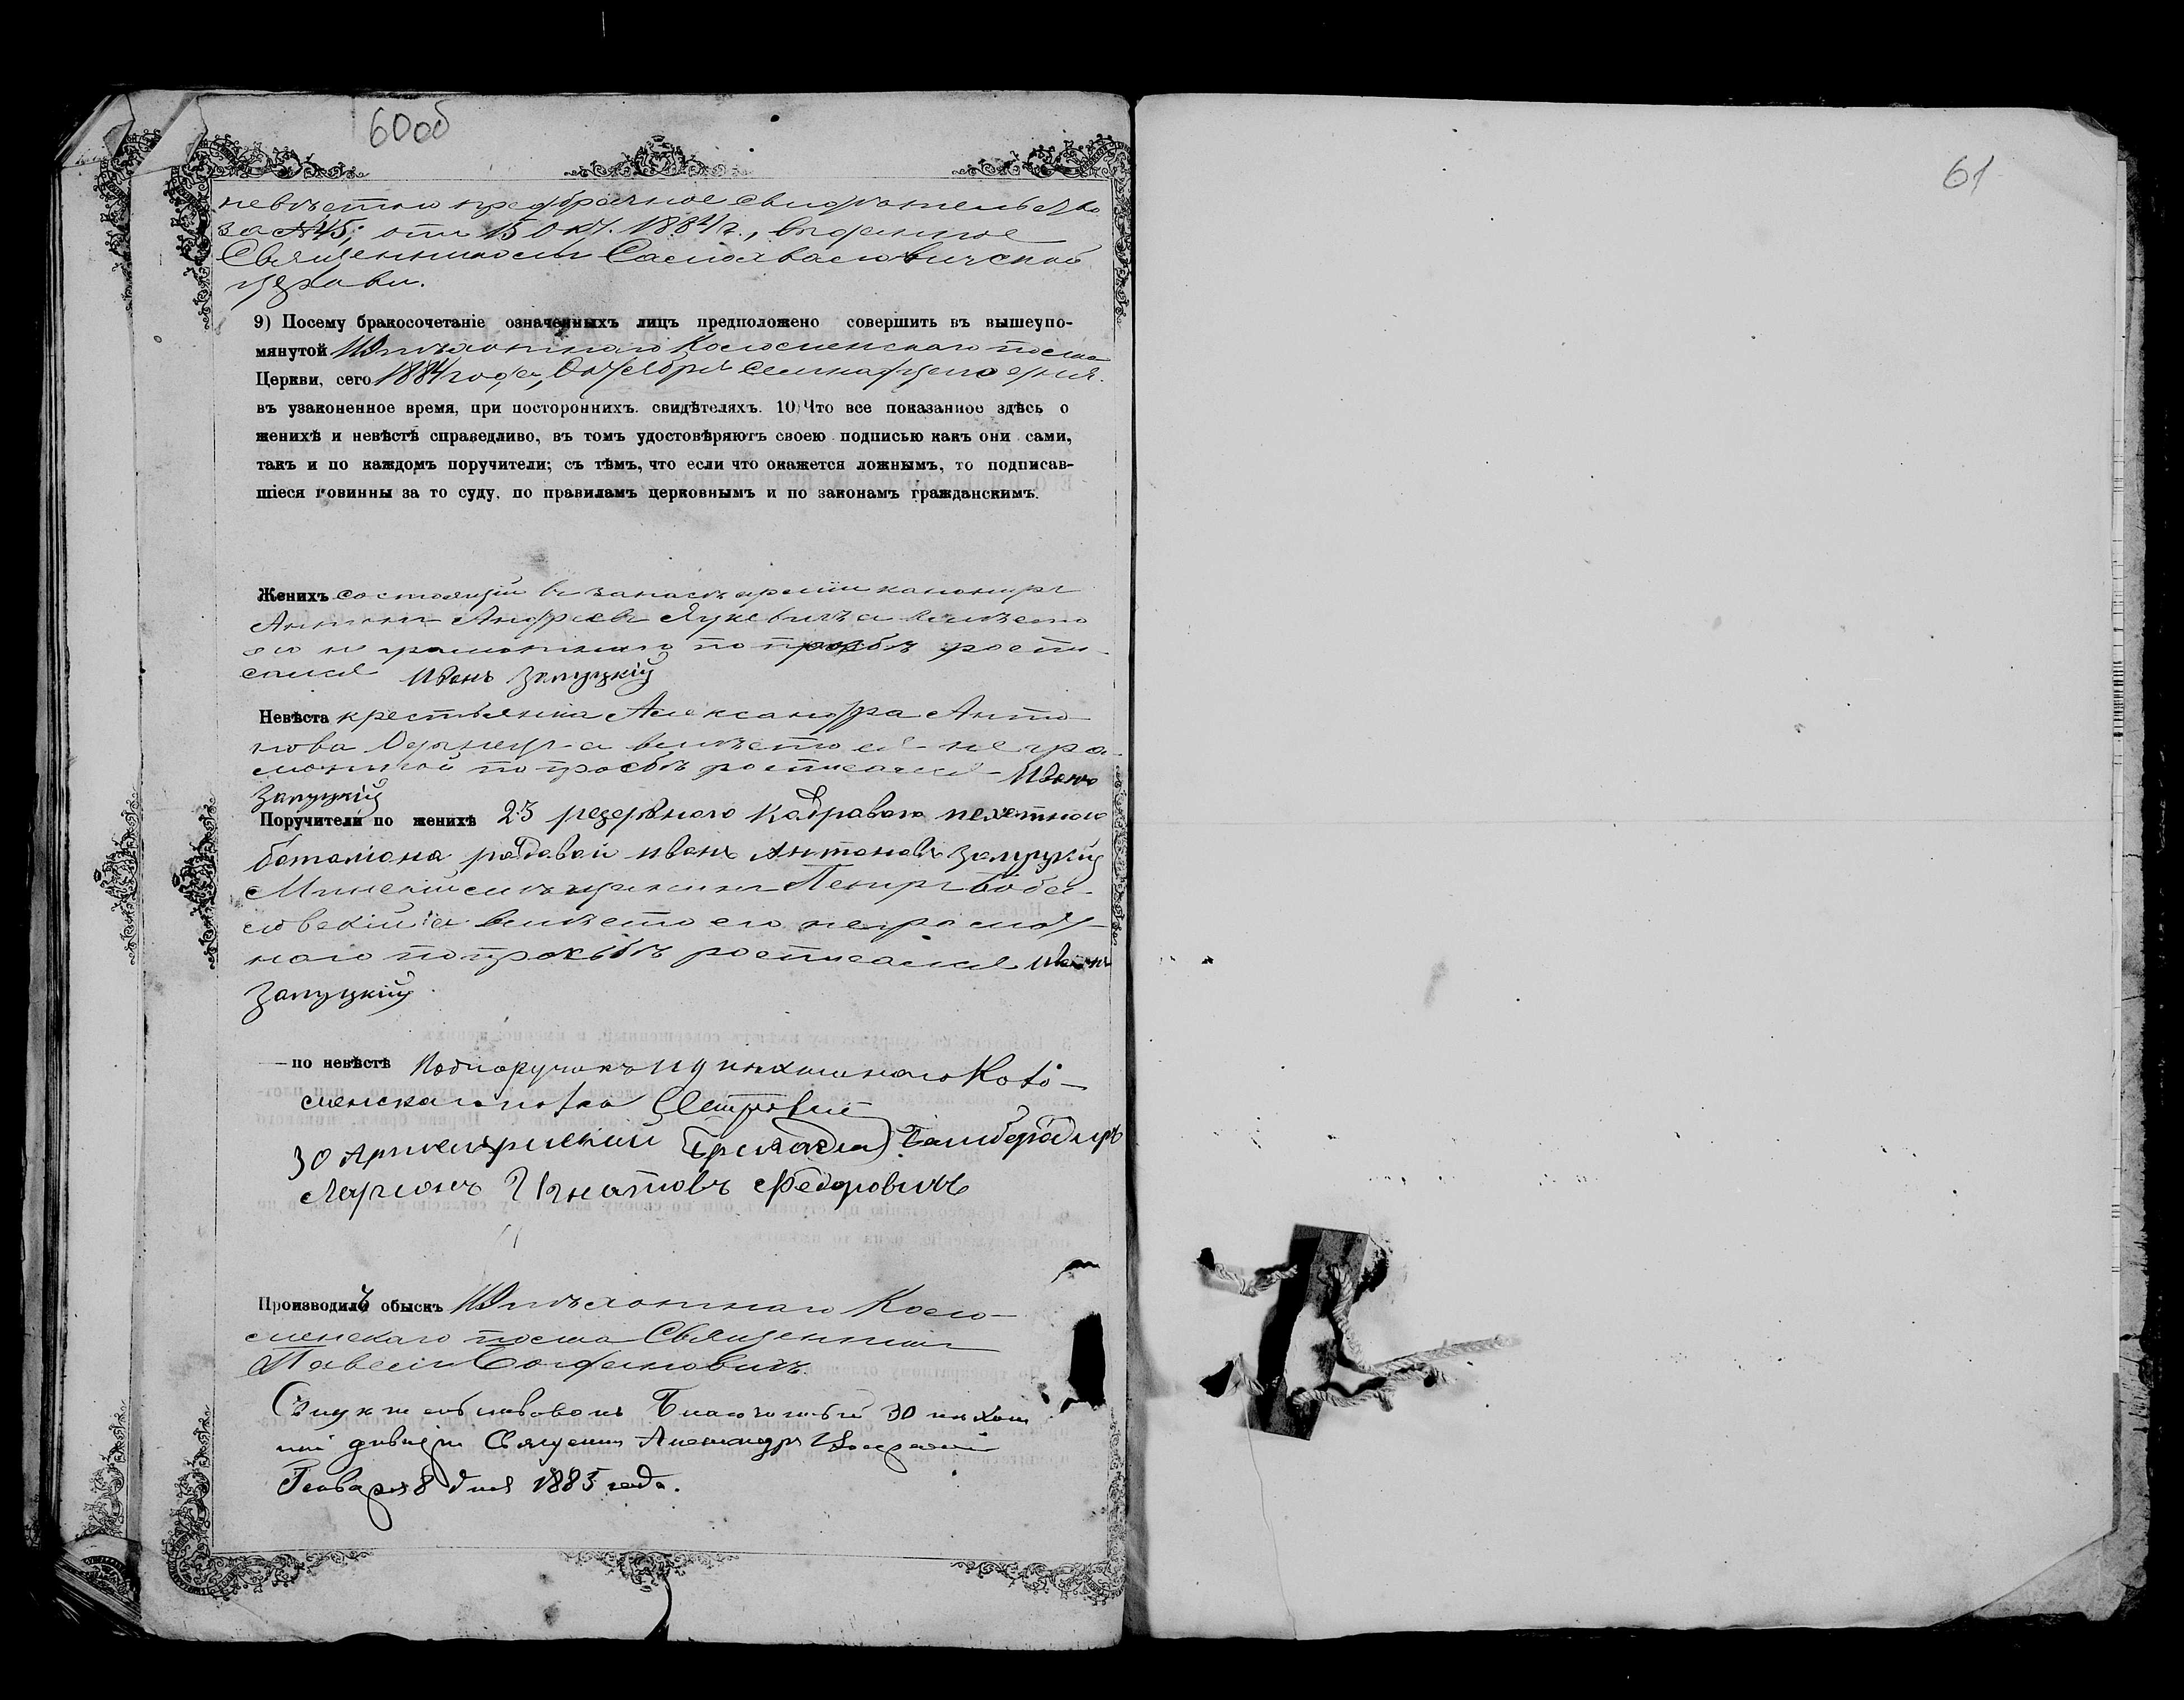 60об
невѣсты предбрачное свидѣтельство
за №45, отъ 15 Окт. 1884 г., выданное
Священникомъ Самохваловичской
церкви.
9) Посему бракосочетаніе означенныхъ лицъ предположено совершить въ вышеупо-
мянутой 119 пѣхотнаго Коломенскаго полка
Церкви, сего 1884 года, Октября семнадцатаго дня.
въ узаконенное время, при постороннихъ. свидѣтеляхъ. 10) Что все показанное здѣсь о
женихѣ и невѣстѣ справедливо, въ томъ удостовѣряютъ своею подписью какъ они сами,
такъ и по каждомъ поручители; съ тѣмъ, что если что окажется ложнымъ, то подписав-
шіеся повинны за то суду, по правиламъ церковнымъ и по законамъ гражданскимъ.
Женихъ состоящій въ запасѣ арміи канониръ
Антонъ Андреевъ Яцкевичъ а вмѣсто
его не грамотнаго по просьбѣ роспи-
сался Иванъ Залуцкій
Невѣста крестьянка Александра Анто-
нова а вмѣсто ея не гра-
мотной по просьбѣ росписался Иванъ
Залуцкій
Поручители по женихѣ 23 резервного Кадраваго пехотнаго
баталіона рядовой иванъ Антоновъ Залуцкій
Минскій мѣщанинъ Петръ
а вмѣсто его неграмот-
наго по просьбѣ росписался Иванъ
Залуцкій
—по невѣстѣ Подпоручикъ 119 пѣхотнаго Коло-
менскаго полка
30 Артилерійской Бригады Бамбердиръ
Ларіонъ Игнатовъ Федоровичъ
Производилъ обыскъ 119 пѣхотнаго Коло-
менскаго полка Священникъ
Павелъ
Благочинный 30 пѣхот
ной дивизіи Священникъ Александръ
Января 8 дня 1885 года.
61